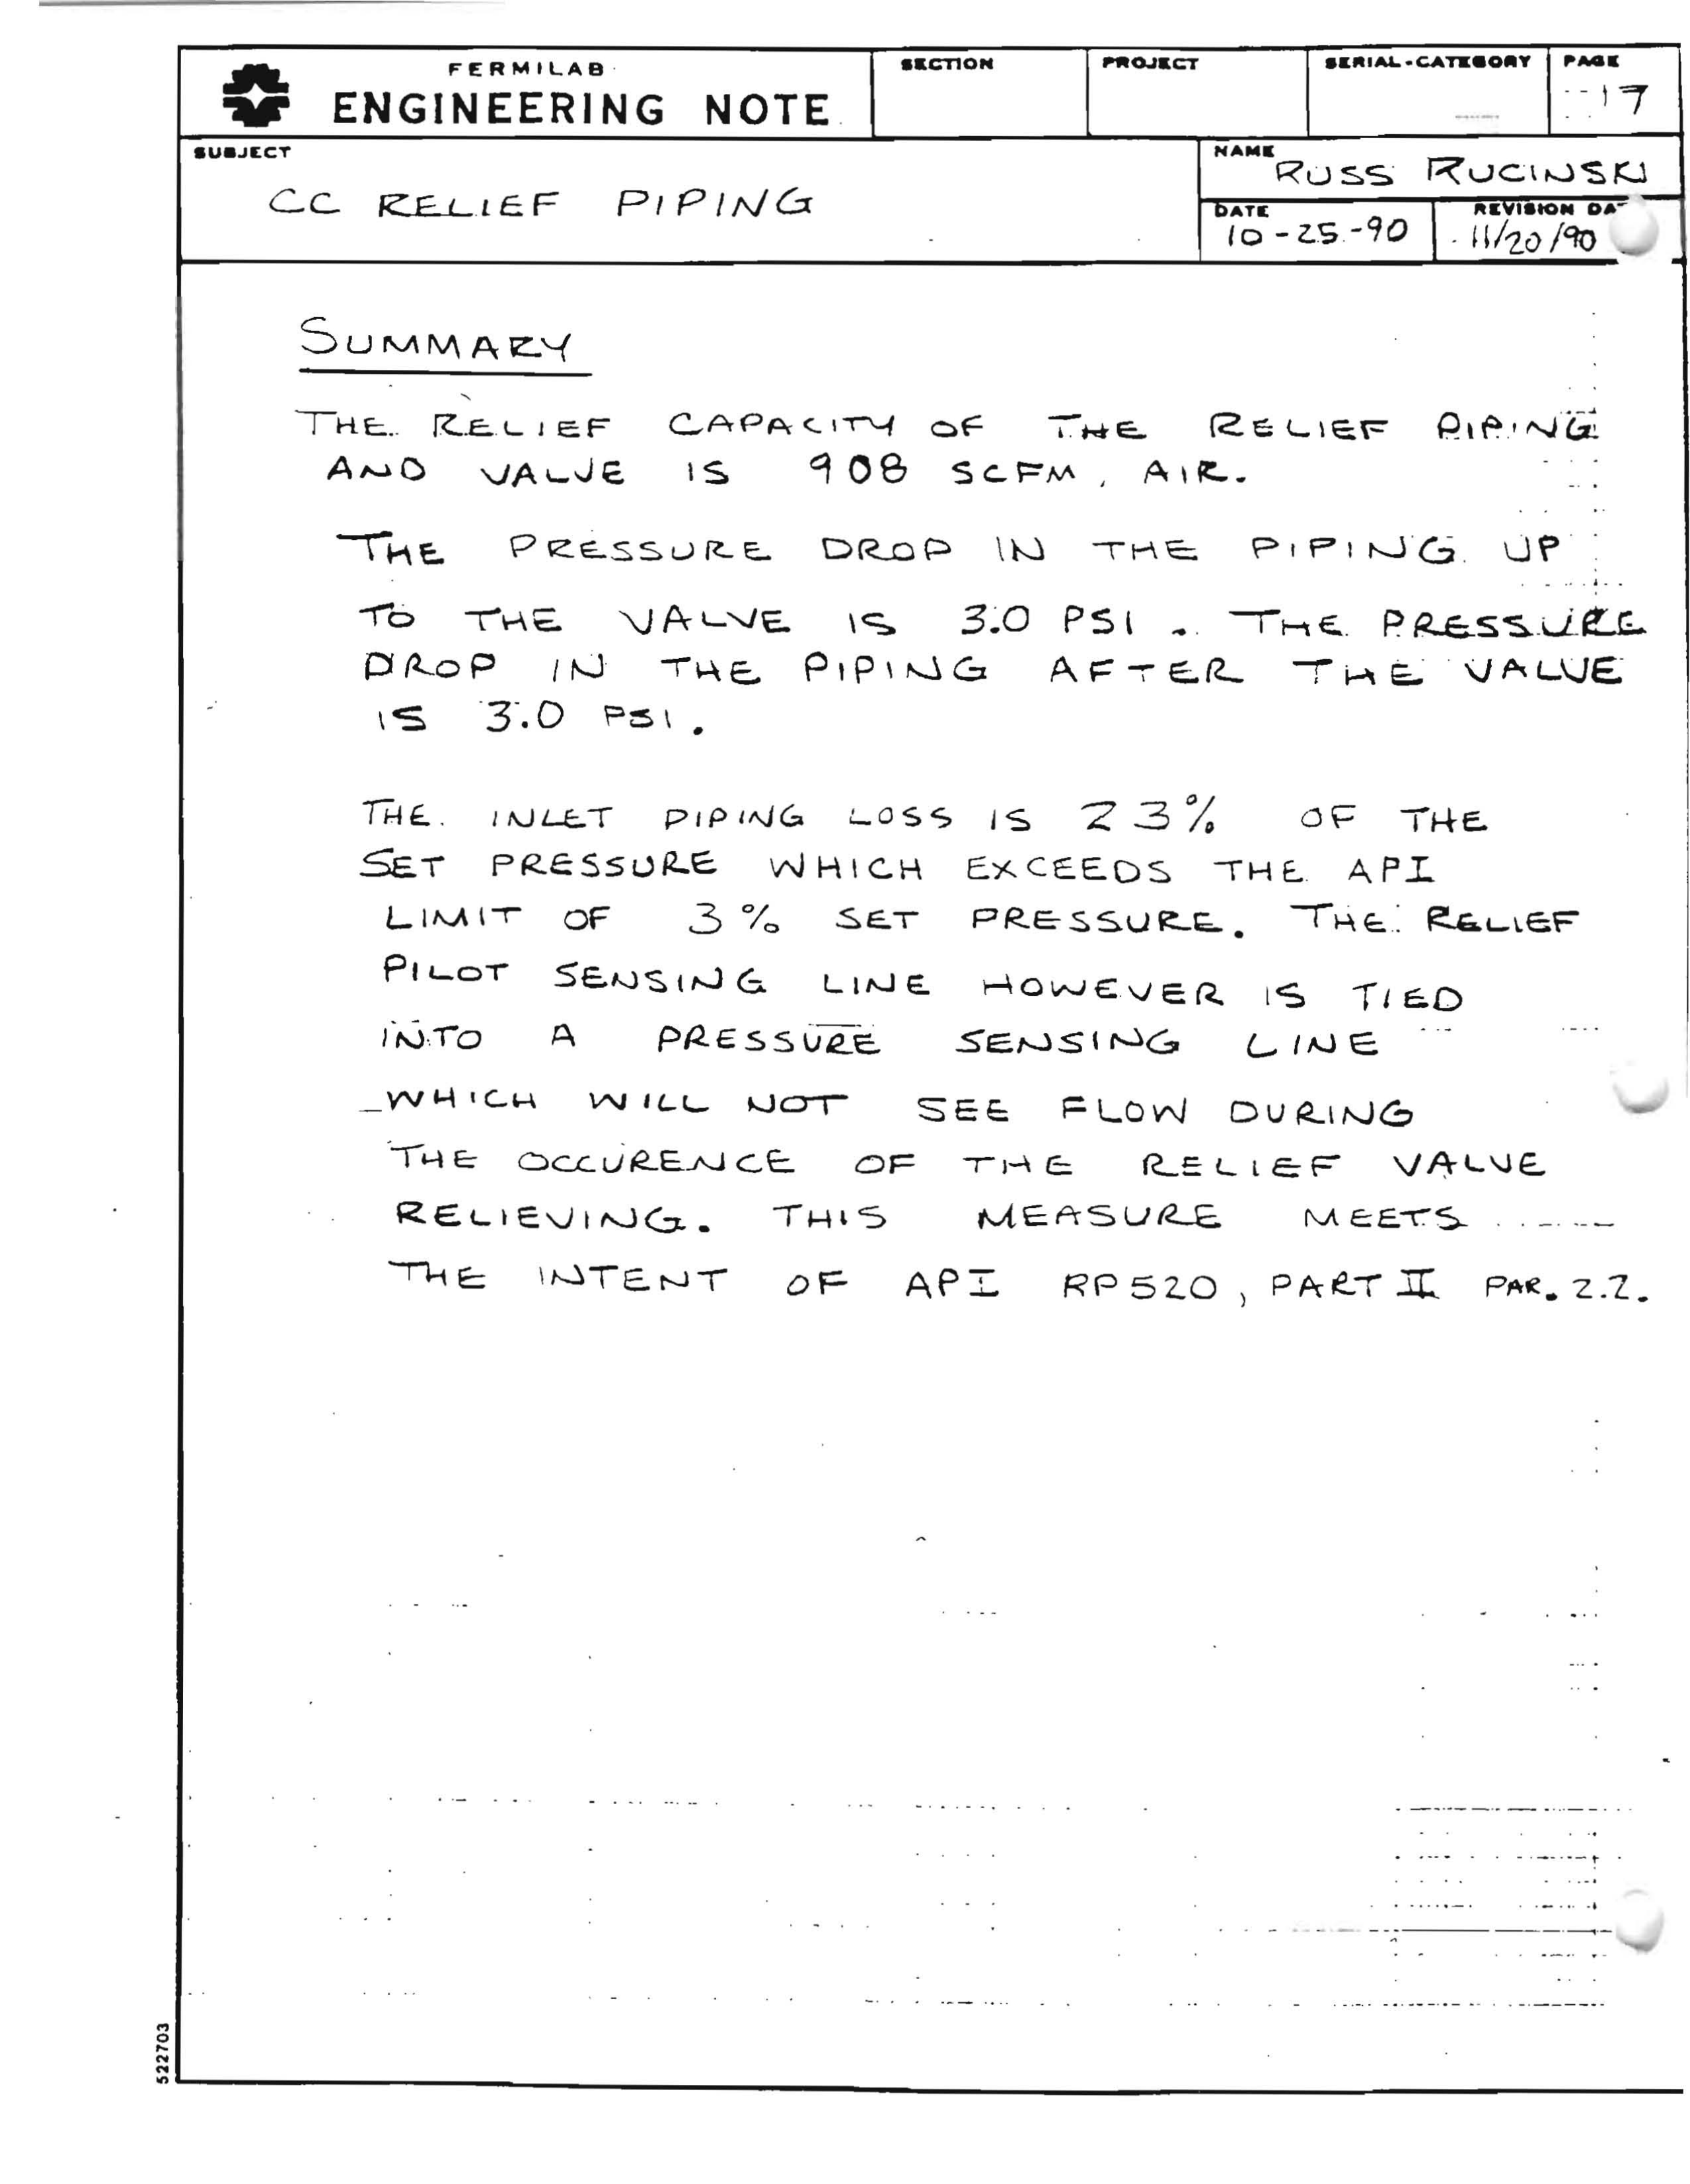 FERMILAB
ENGINEERING NOTE
SECTION
PROJECT
SERIAL-CATEGORY
PAGE
17
SUBJECT
CC RELIEF PIPING
NAME
RUSS RUCINSKI
DATE
10-25-90
REVISION DA
11/20/90
SUMMARY
THE RELIEF CAPACITY OF THE RELIEF PIPING
AND VALVE IS 908 SCFM, AIR.
THE PRESSURE DROP IN THE PIPING UP
TO THE VALVE IS 3.0 PSI. THE PRESSURE
DROP IN THE PIPING AFTER THE VALVE
IS 3.0 PSI.
THE INLET PIPING LOSS IS 23% OF THE
SET PRESSURE WHICH EXCEEDS THE API
LIMIT OF 3% SET PRESSURE. THE RELIEF
PILOT SENSING LINE HOWEVER IS TIED
INTO A PRESSURE SENSING LINE
WHICH WILL NOT SEE FLOW DURING
THE OCCURENCE OF THE RELIEF VALVE
RELIEVING. THIS MEASURE MEETS
THE INTENT OF API RP520, PART II PAR. 2.2.
522703